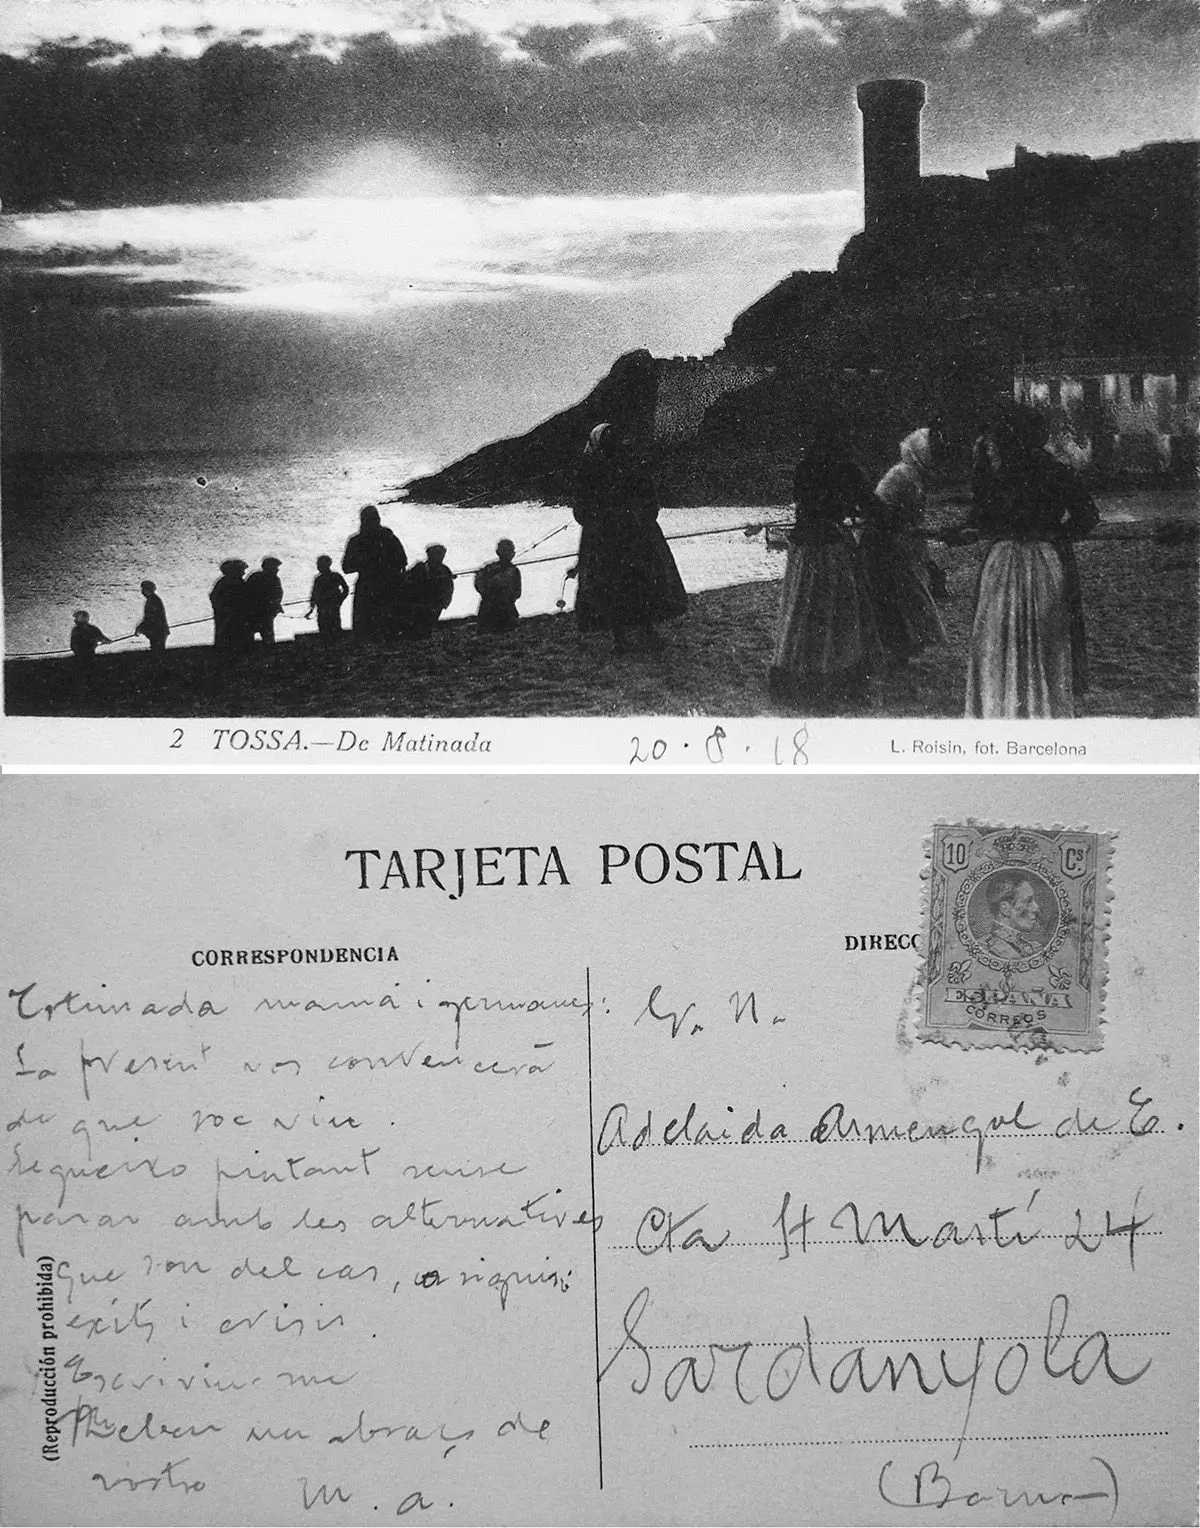 2 TOSSA.—De Matinada
20·8·18
L. Roisin, fot. Barcelona
TARJETA POSTAL
10 Cs
ESPAÑA
CORREOS
CORRESPONDENCIA
DIRECC
Estimada mamá i germanes:
La present vos convencerá
de que soc viu.
Segueixo pintant sense
parar amb les alternatives
que son del cas, o sigui:
exits i crisis.
Escriviu-me
Rebeu un abraç de
vostro
M. A.
(Reproducción prohibida)
Sr. N.
Adelaida Armengol de E.
Cta St Martí 24
Sardanyola
(Barna)